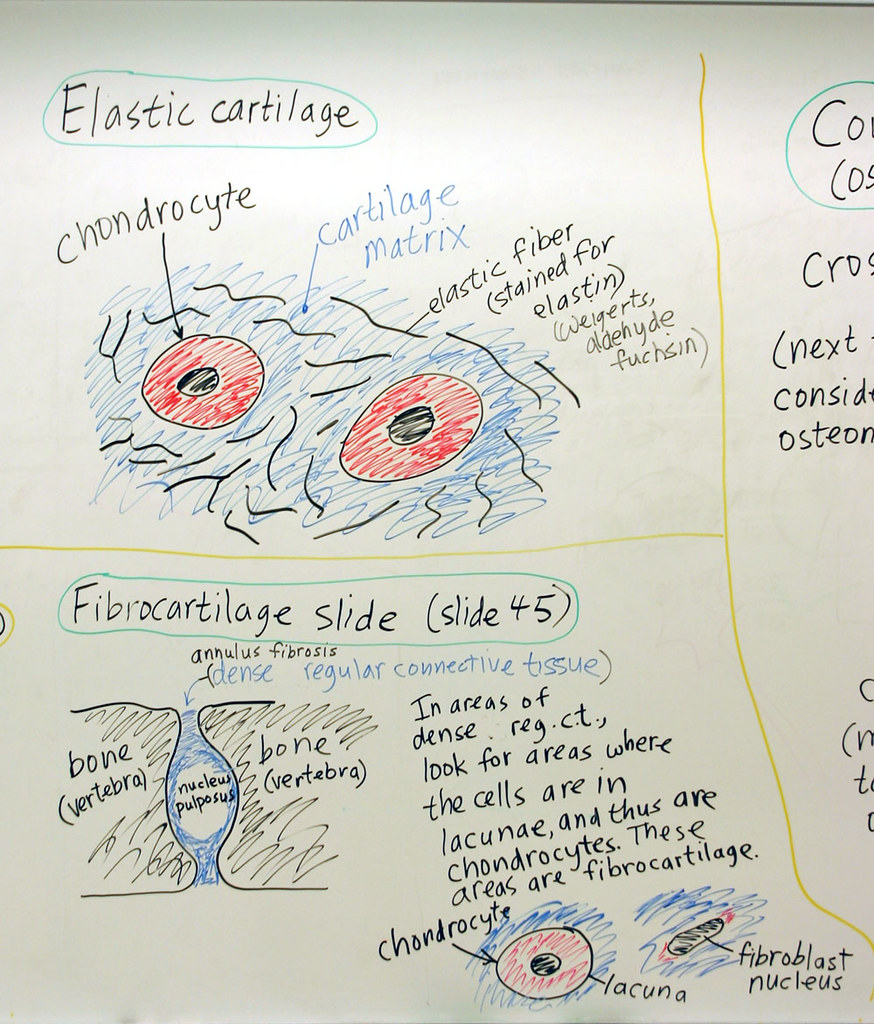 Elastic cartilage
chondrocyte
cartilage
matrix
elastic fiber
(stained for
elastin)
(weigerts,
aldehyde
fuchsin)
Fibrocartilage slide (slide 45)
annulus fibrosis
(dense regular connective tissue)
bone
(vertebra)
nucleus
pulposus
bone
(vertebra)
In areas of
dense reg. c.t.,
look for areas where
the cells are in
lacunae, and thus are
chondrocytes. These
areas are fibrocartilage.
chondrocyte
lacuna
fibroblast
nucleus
(next
osteon